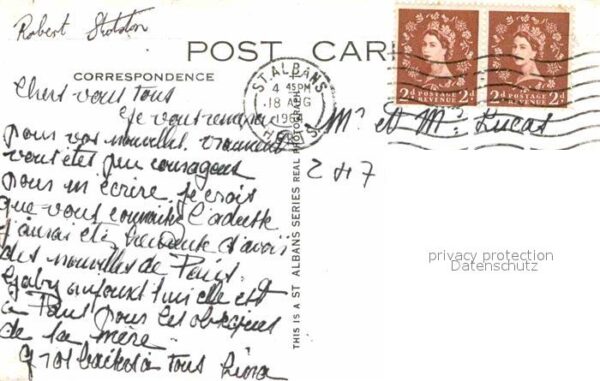 Robert
POST CARD
CORRESPONDENCE
ST. ALBANS
4 45PM
18 AUG
196
HERTS
2d POSTAGE REVENUE 2d
2d POSTAGE REVENUE 2d
Chers vous tous
Je vous remercie
pour vos nouvelles. vraiment
vous êtes peu courageux
pour m écrire. je crois
que vous connaître l'adresse
j'aurais été contente d'avoir
des nouvelles de Paris.
Gaby aujourd'hui elle est
à Paris pour les obsèques
de la mère
gros baisers à tous
Mr et Mme Lucas
2 47
THIS IS A ST ALBANS SERIES REAL PHOTOGRAPH
privacy protection
Datenschutz